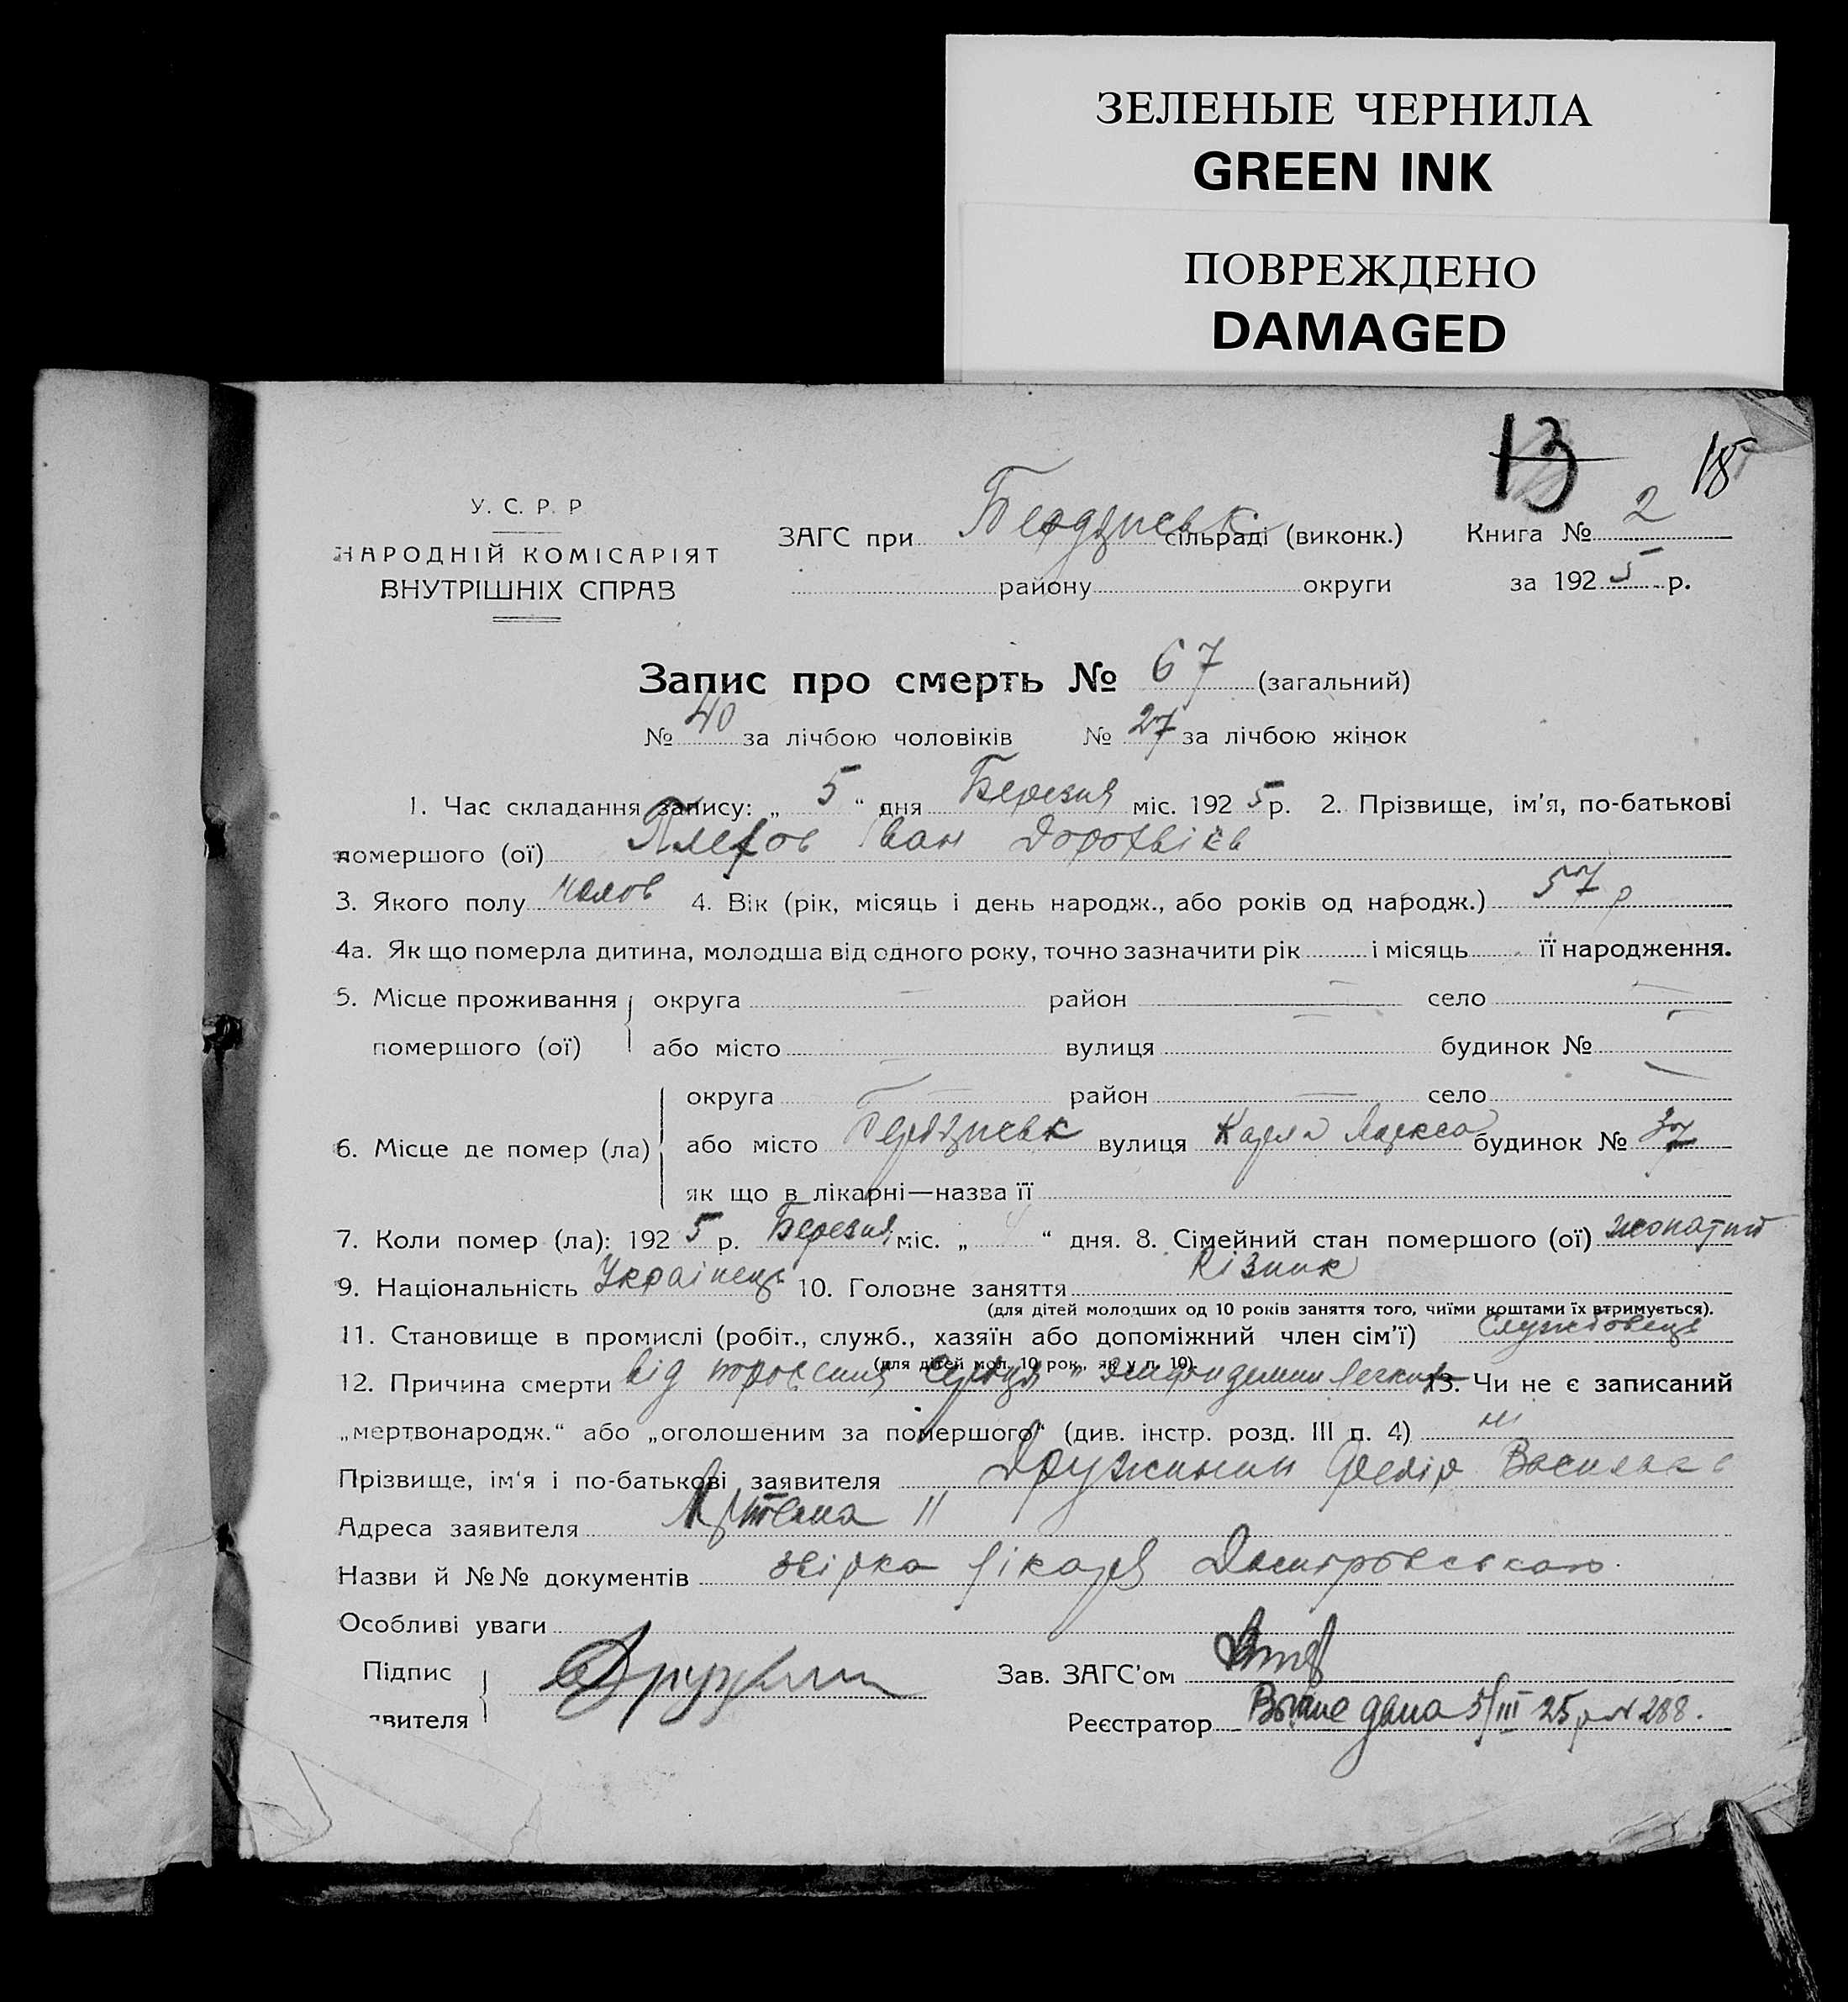 ЗЕЛЕНЫЕ ЧЕРНИЛА
GREEN INK
ПОВРЕЖДЕНО
DAMAGED
13 18
У. С. Р. Р
НАРОДНІЙ КОМІСАРІЯТ
ВНУТРІШНІХ СПРАВ
ЗАГС при Бердянськ сільраді (виконк.) Книга № 2
району округи за 1925 р.
Запис про смерть № 67 (загальний)
№ 40 за лічбою чоловіків № 27 за лічбою жінок
1. Час складання запису: „ 5 “ дня Березня міс. 1925 р. 2. Прізвище, ім'я, по-батькові
помершого (ої) Іван
3. Якого полу чолов 4. Вік (рік, місяць і день народж., або років од народж.) 57 р
4а. Як що померла дитина, молодша від одного року, точно зазначити рік і місяць її народження.
5. Місце проживання помершого (ої) округа — район — село —
або місто вулиця — будинок № —
6. Місце де помер (ла) округа — район — село —
або місто Бердянськ вулиця Карла Маркса будинок № 37
як що в лікарні—назва її
7. Коли помер (ла): 1925 р. Березня міс. „ 4 “ дня. 8. Сімейний стан помершого (ої) жонатий
9. Національність Українець 10. Головне заняття Різник
(для дітей молодших од 10 років заняття того, чиїми коштами їх втримується).
11. Становище в промислі (робіт., служб., хазяїн або допоміжний член сім'ї) Службовець
(для дітей мол. 10 рок., як у п. 10).
12. Причина смерти від серця легких 13. Чи не є записаний
„мертвонародж.“ або „оголошеним за помершого“ (див. інстр. розд. III п. 4) ні
Прізвище, ім'я і по-батькові заявителя Дружинин
Адреса заявителя Артема 11
Назви й №№ документів лікаря
Особливі уваги
Підпис Зав. ЗАГС'ом
явителя Реєстратор дана 5/III 25 р № 288.